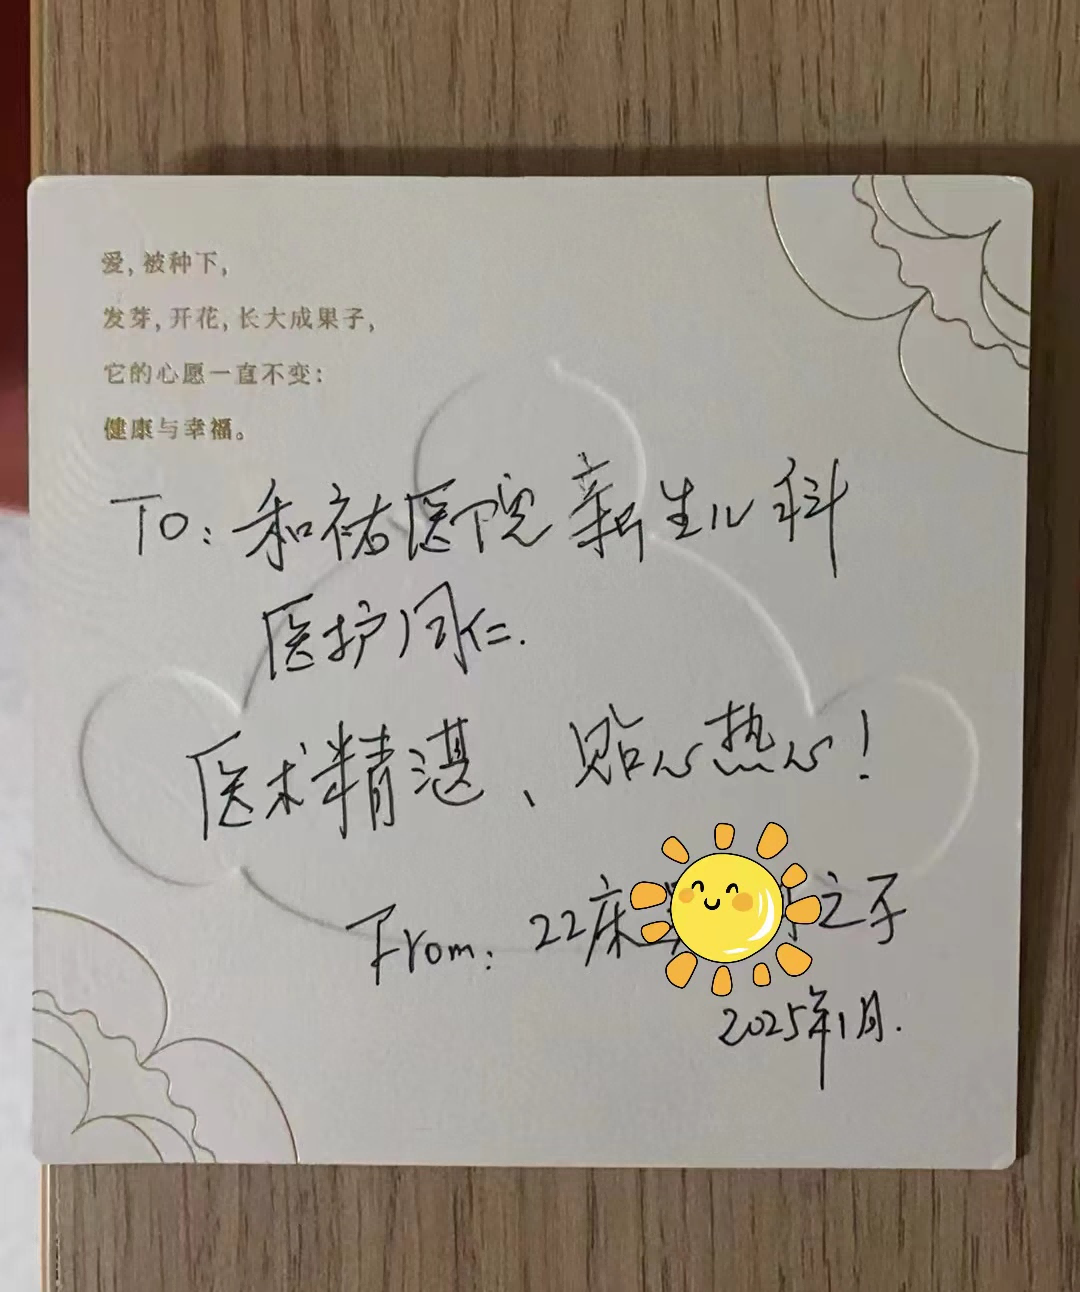 爱,被种下,
发芽,开花,长大成果子,
它的心愿一直不变:
健康与幸福。
To: 和祐医院新生儿科
医护同仁.
医术精湛、贴心热心!
From: 22床 之子
2025年1月.